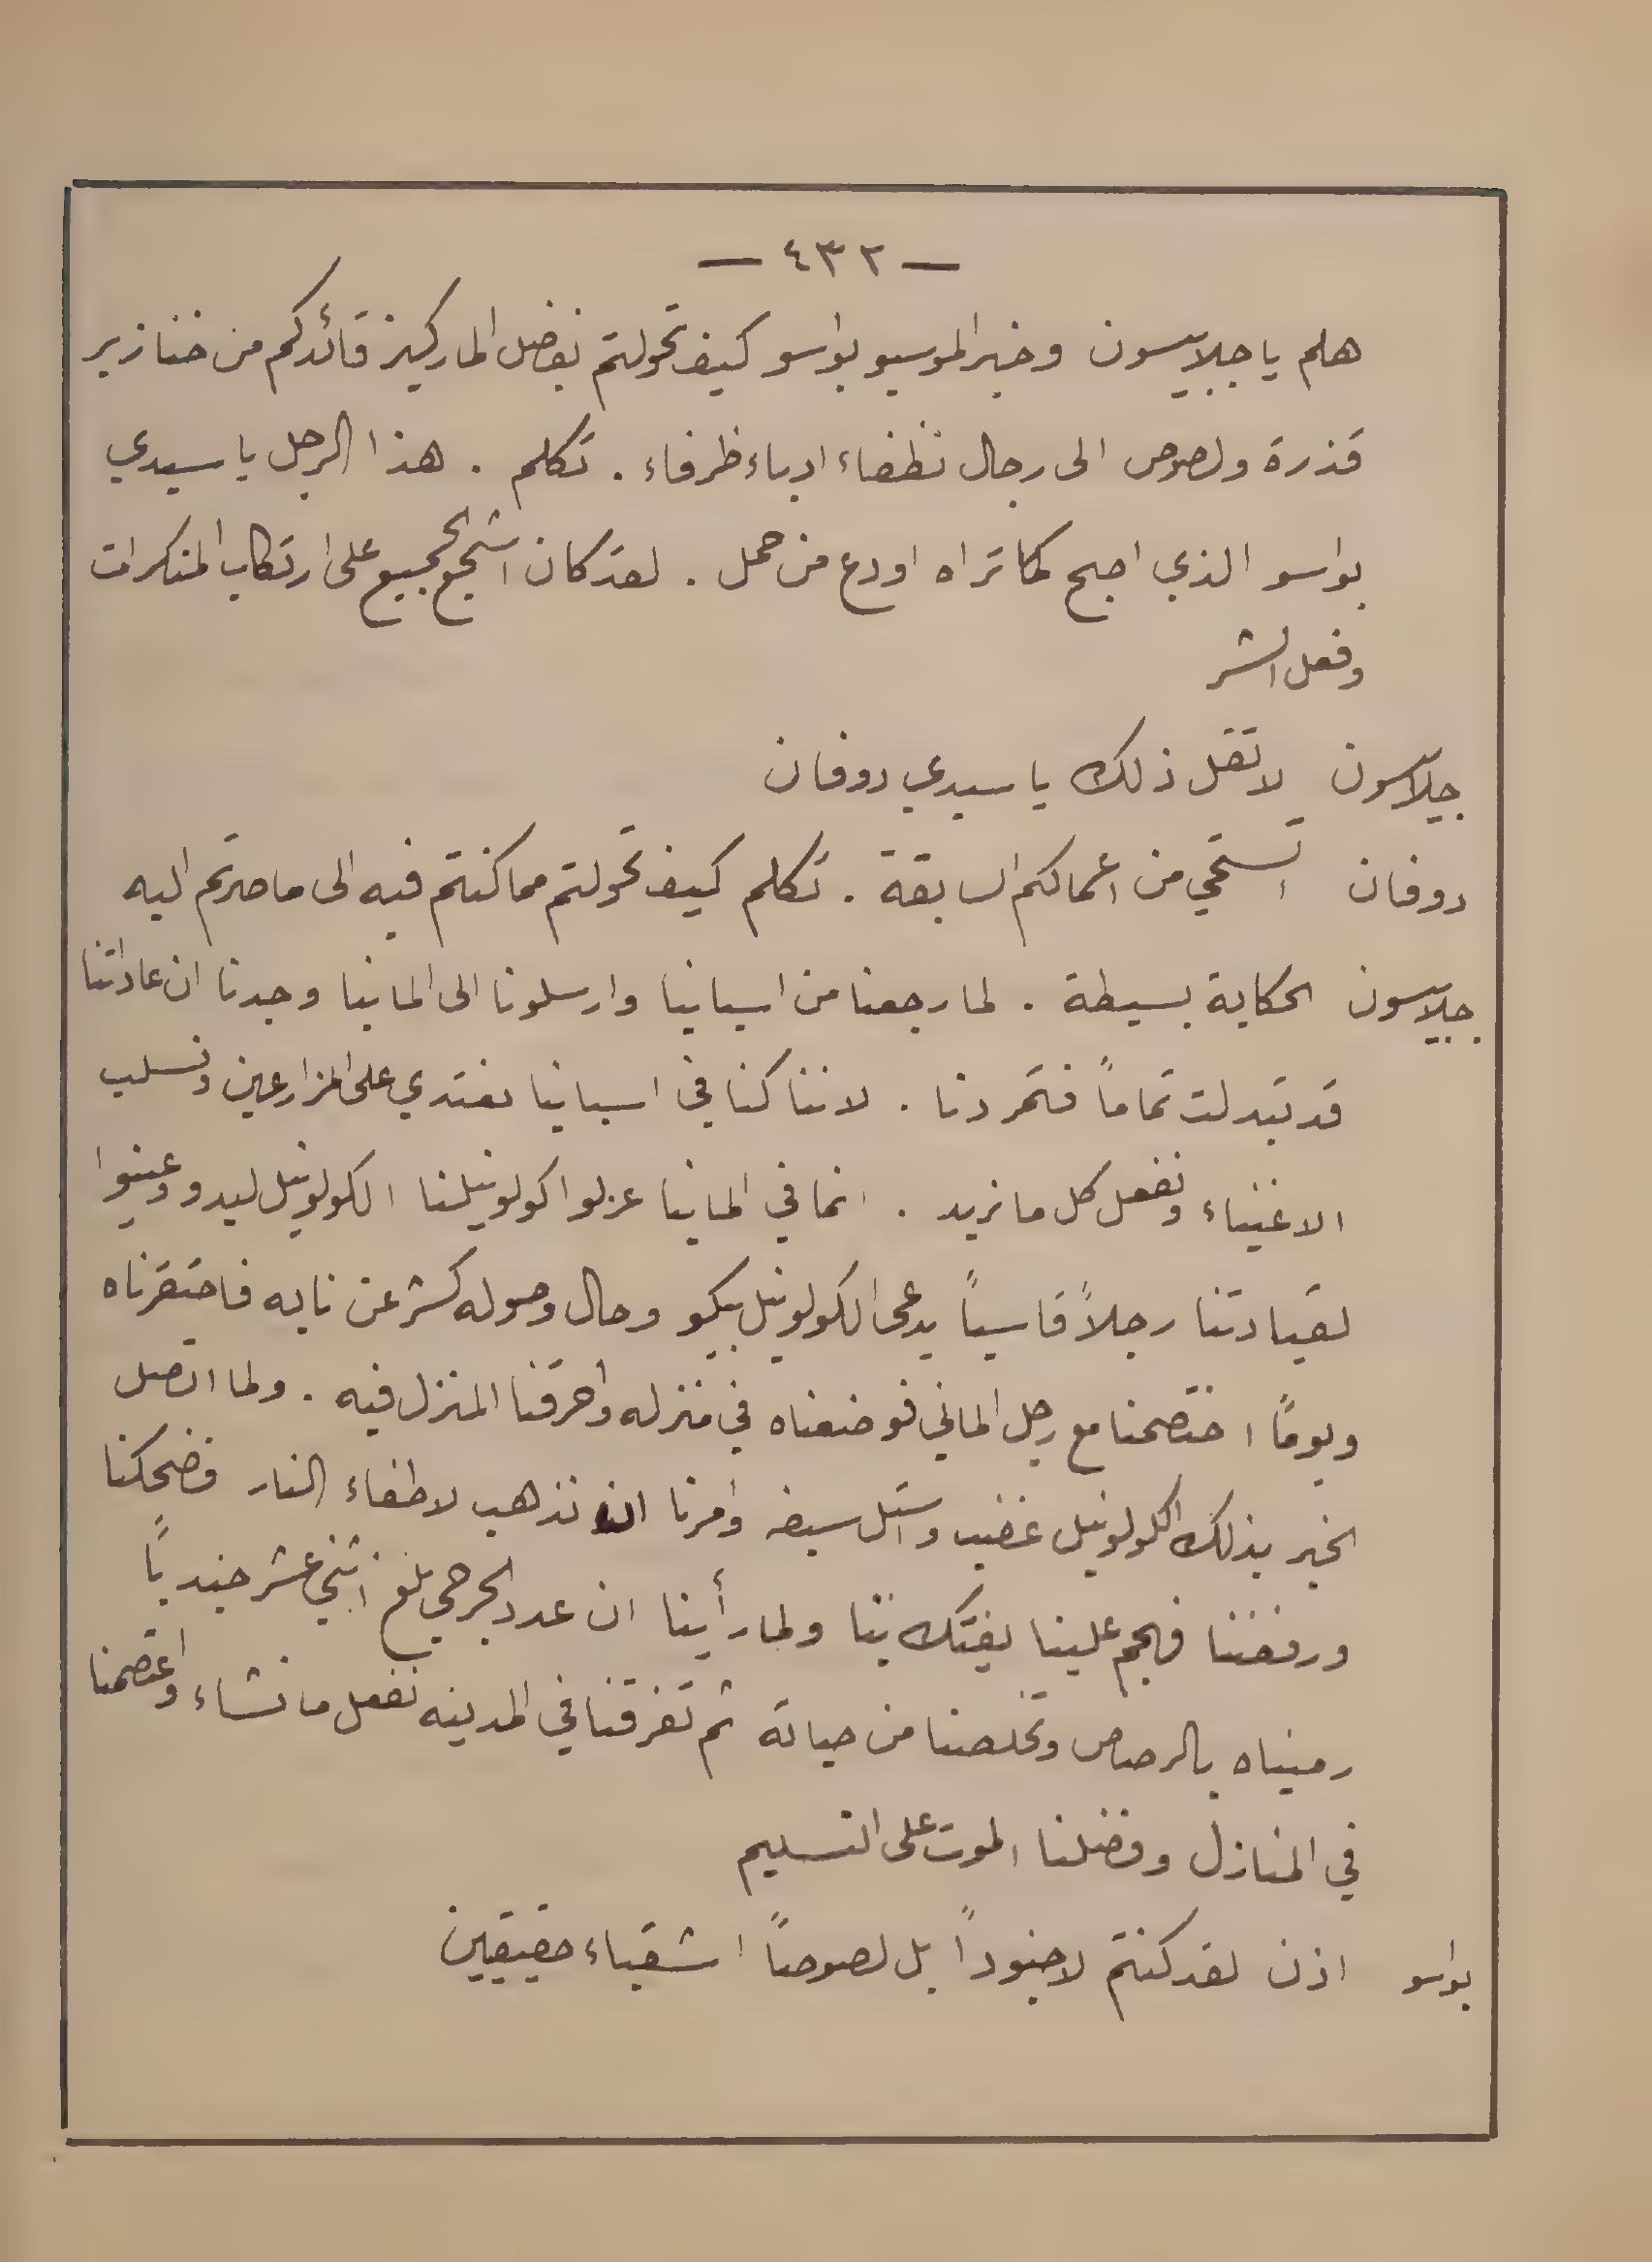 — ٤٣٢ —
هلم يا جبلاسون وخبر الموسيو بواسو كيف تحولتم بفضل الماركيز قائدكم من خنازير
قذرة ولصوص الى رجال نظفاء ادباء ظرفاء . تكلم . هذا الرجل يا سيدي
بواسو الذي اصبح كما تراه اودع من حمل . لقد كان اشجع الجميع على ارتكاب المنكرات
وفعل الشر
جبلاسون لا تقل ذلك يا سيدي دوفان
دوفان اتستحي من اعمالكم السابقة . تكلم كيف تحولتم مما كنتم فيه الى ما صرتم اليه
جبلاسون الحكاية بسيطة . لما رجعنا من اسبانيا وارسلونا الى المانيا وجدنا ان عاداتنا
قد تبدلت تماماً فتمردنا . لاننا كنا في اسبانيا نعتدي على المزارعين ونسلب
الاغنياء ونفعل كل ما نريد . انما في المانيا عزلوا كولونيلنا الكولونيل ليدو وعينوا
لقيادتنا رجلاً قاسياً يدعى الكولونيل بيكو وحال وصوله كشر عن نابه فاحتقرناه
ويوماً اختصمنا مع رجل الماني فوضعناه في منزله واحرقنا المنزل فيه . ولما اتصل
الخبر بذلك الكولونيل غضب واستل سيفه وامرنا ان نذهب لاطفاء النار فضحكنا
ورفضنا فهجم علينا يفتك بنا ولما رأينا ان عدد الجرحى بلغ اثني عشر جندياً
رميناه بالرصاص وتخلصنا من حياته ثم تفرقنا في المدينه نفعل ما نشاء واعتصمنا
في المنازل وفضلنا الموت على التسليم
بواسو اذن لقد كنتم لا جنوداً بل لصوصاً اشقياء حقيقيين